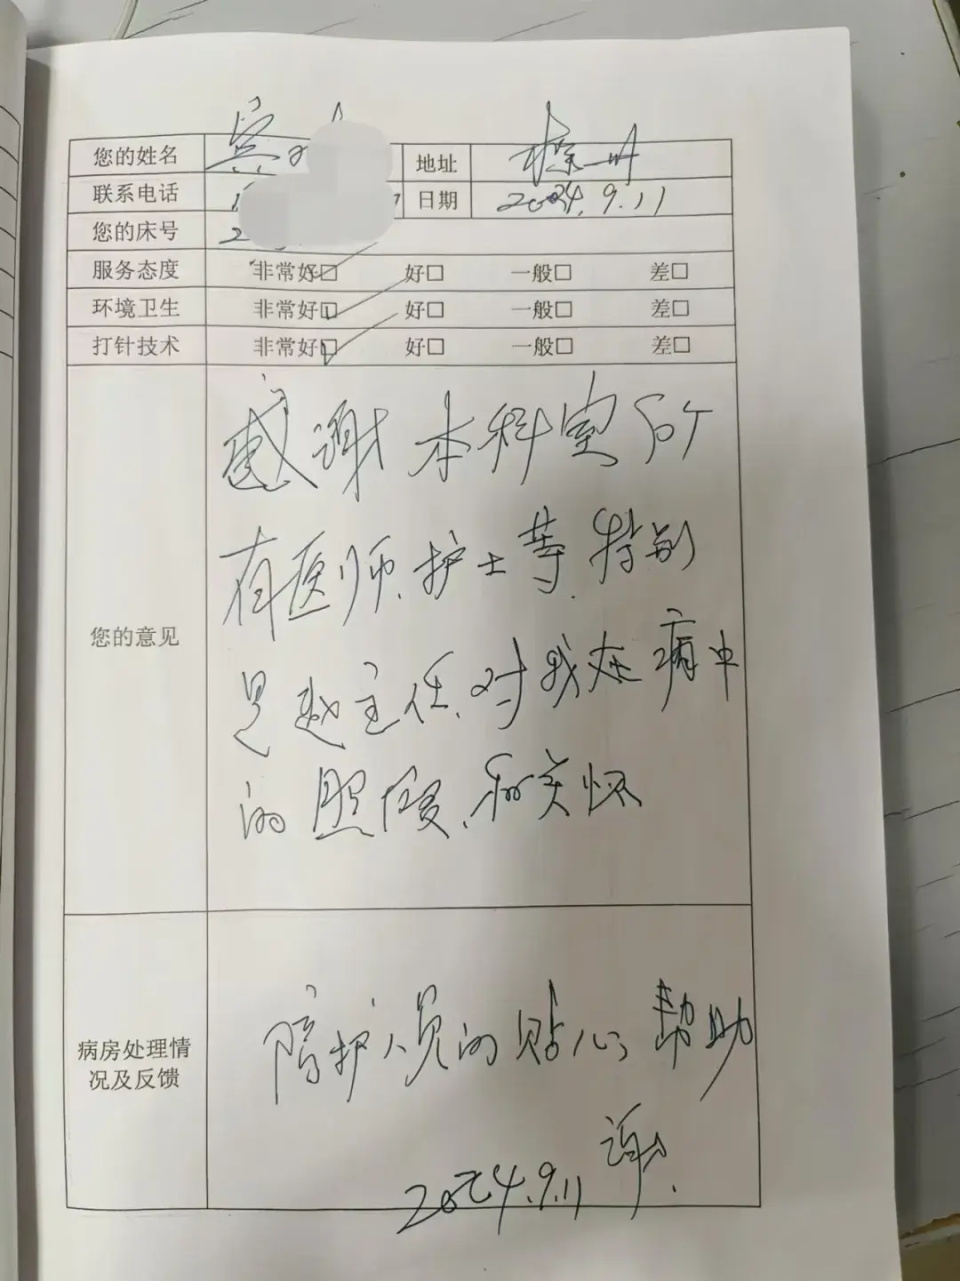 您的姓名 地址
联系电话 日期 2024.9.11
您的床号
服务态度 非常好☑ 好□ 一般□ 差□
环境卫生 非常好☑ 好□ 一般□ 差□
打针技术 非常好☑ 好□ 一般□ 差□
您的意见
感谢本科室所
有医师、护士等、特别
是赵主任、对我在病中
的照顾、和关怀
病房处理情
况及反馈
陪护人员的贴心帮助
谢
2024.9.11